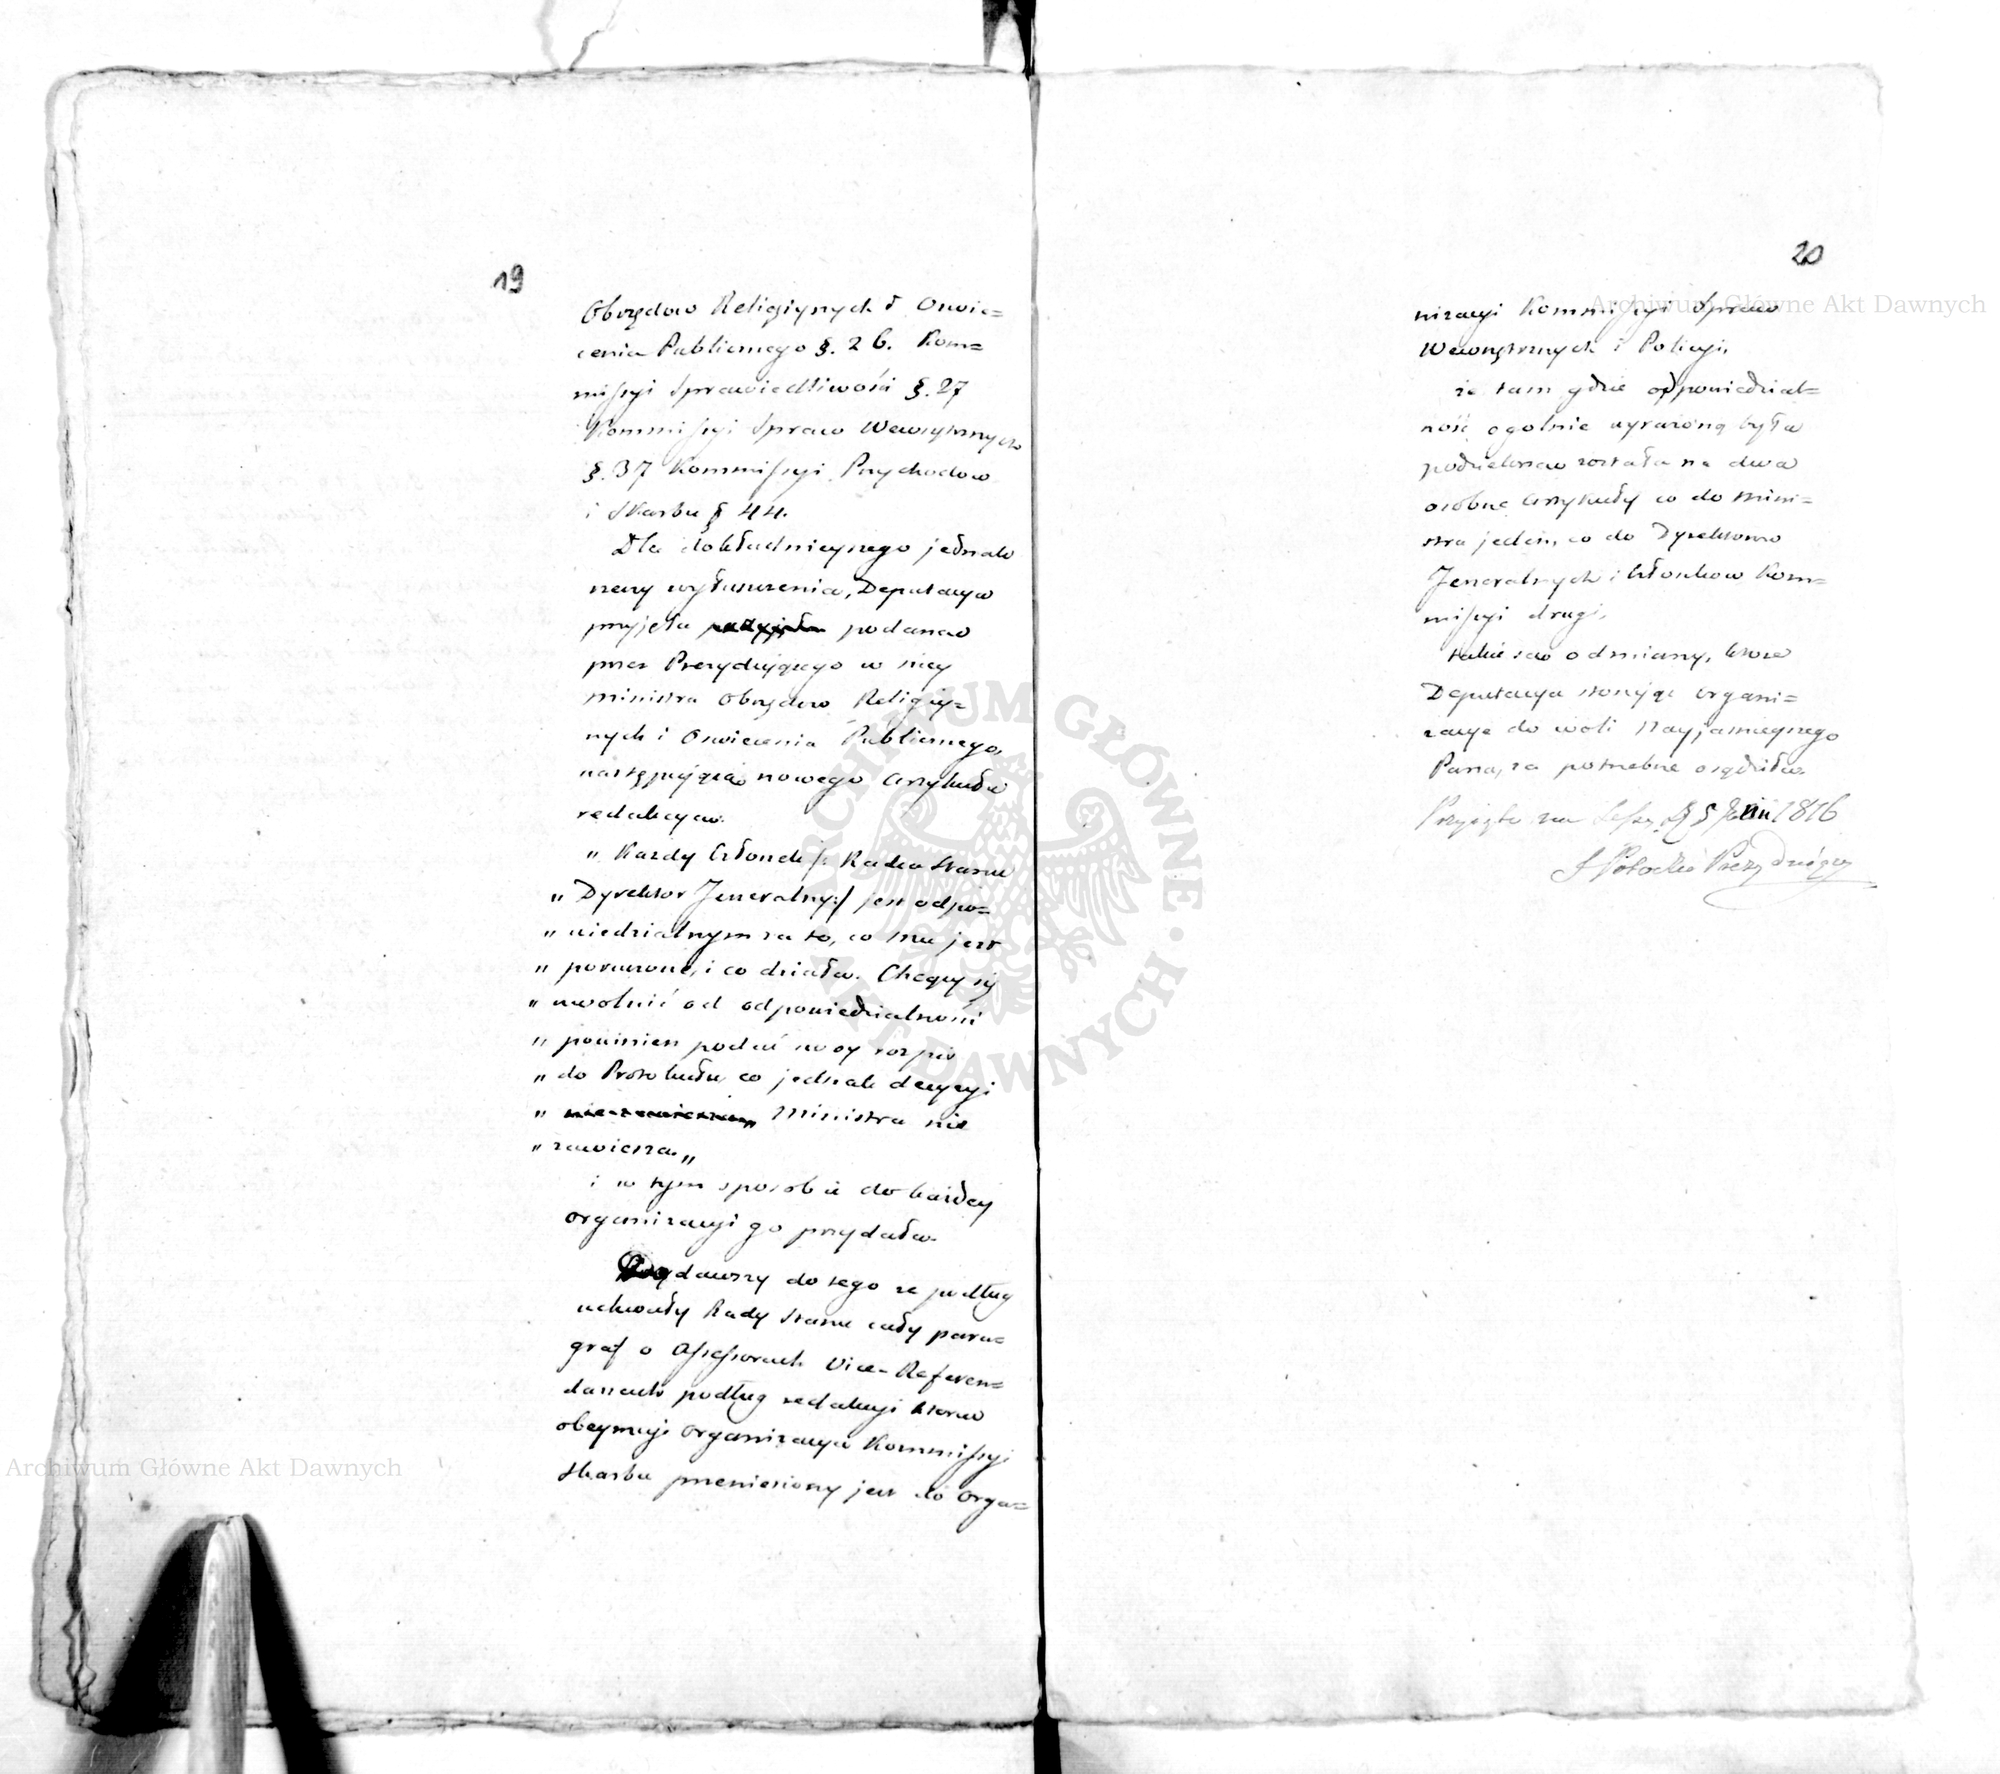 19
Obrzędow Religiynych i Oswie=
cenia Publicznego §. 26. Kom=
missyi Sprawiedliwości §. 27
Kommissyi Spraw Wewnętrznych
§. 37 Kommissyi Przychodow
i Skarbu § 44.
Dla dokładnieyszego jednak
rzeczy wytłuszczenia, Deputacya
przyjęła podana
przez Prezydującego w niey
Ministra Obrzędow Religiy=
nych i Oswiecenia Publicznego,
następująca nowego Artykułu
redakcya.
„ Kazdy Członek /: Radca Stanu
„ Dyrektor Jeneralny :/ jest odpo=
„ wiedzialnym za to, co mu jest
„ poruczone, i co działa. Chcący się
„ uwolnić od odpowiedzialności
„ powinien podać swoy rozpis
„ do Protokułu, co jednak decyzyi
„ Ministra nie
„ zawiesza „
i w tym sposobie do każdey
organizacyi go przydała.
dawszy do tego ze podług
uchwały Rady Stanu cały para=
graf o Assessorach Vice-Referen=
darzach podług redakcyi ktora
obeymuje Organizacya Kommissyi
Skarbu przeniesiony jest do Orga=
20
nizacyi Kommissyi Spraw
Wewnętrznych i Policyi,
że tam gdzie odpowiedzial=
ność ogolnie wyrażona była
podzielona została na dwa
osobne Artykuły co do Mini=
stra jeden, co do Dyrektorow
Jeneralnych i Członkow Kom=
missyi drugi,
takie są odmiany, ktore
Deputacya stosując Organi=
zacye do woli Nayjasnieyszego
Pana, za potrzebne osądziła.
Przyięto na Sessyi 1816
S Potocki Prezyduiący
Archiwum Główne Akt Dawnych
Archiwum Główne Akt Dawnych
ARCHIWUM GŁÓWNE AKT DAWNYCH